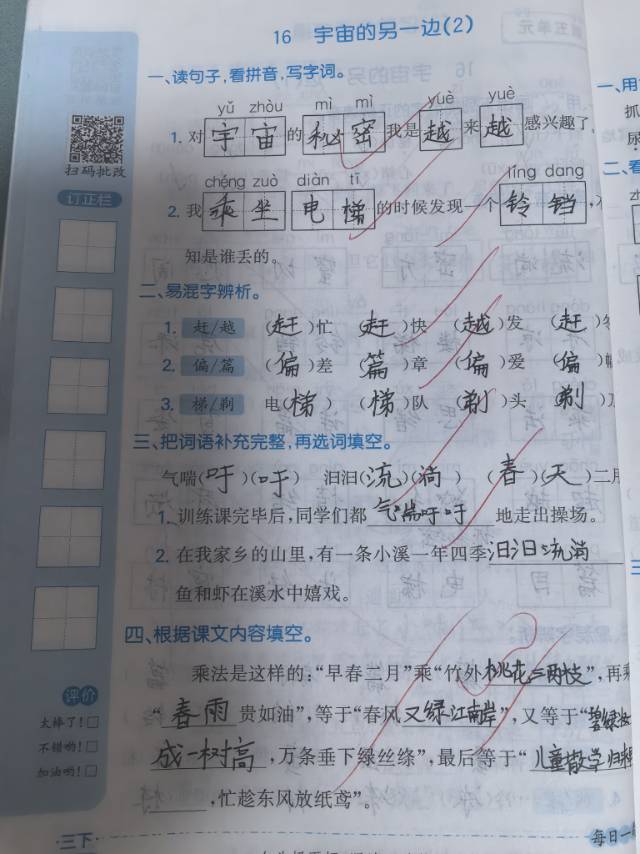 16 宇宙的另一边(2)
一、读句子,看拼音,写字词。
yǔ zhòu mì mì yuè yuè
1. 对宇宙的秘密我是越来越感兴趣了,
chéng zuò diàn tī líng dang
2. 我乘坐电梯的时候发现一个铃铛,
知是谁丢的。
二、易混字辨析。
1. 赶/越 (赶)忙 (赶)快 (越)发 (赶)
2. 偏/篇 (偏)差 (篇)章 (偏)爱 (偏)
3. 梯/剃 电(梯) (梯)队 (剃)头 (剃)
三、把词语补充完整,再选词填空。
气喘(吁)(吁) 汩汩(流)(淌) (春)(天)二月
1. 训练课完毕后,同学们都气喘吁吁地走出操场。
2. 在我家乡的山里,有一条小溪一年四季汩汩流淌
鱼和虾在溪水中嬉戏。
四、根据课文内容填空。
乘法是这样的:“早春二月”乘“竹外桃花三两枝”,再
“春雨贵如油”,等于“春风又绿江南岸”,又等于“碧绿妆
成一树高,万条垂下绿丝绦”,最后等于“儿童散学归
,忙趁东风放纸鸢”。
扫码批改
订正栏
评价
太棒了!□
不错哟!□
加油哟!□
三下
每日一
五单元
一、用
抓
二、看